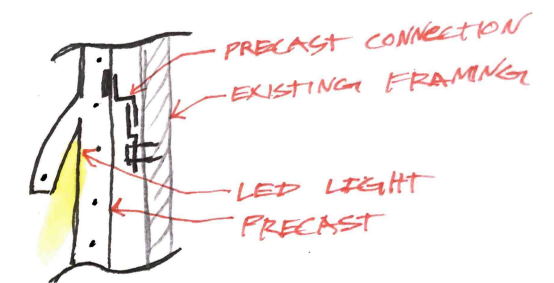 PRECAST CONNECTION
EXISTING FRAMING
LED LIGHT
PRECAST